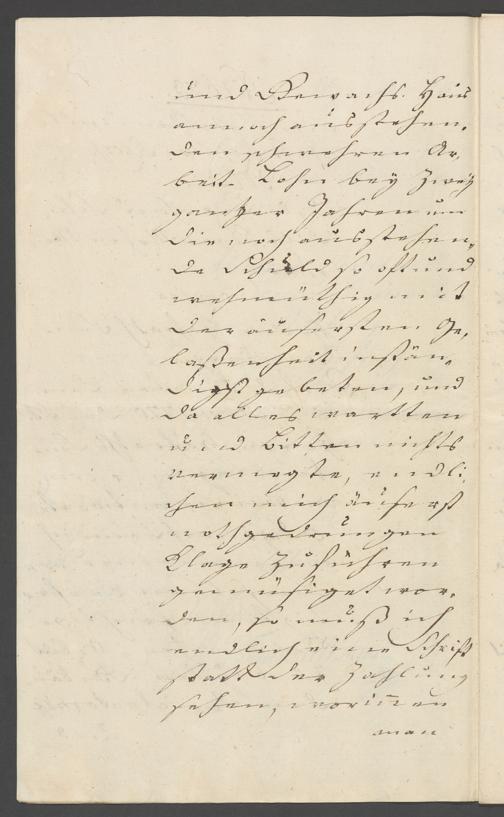 und Gewachs. Haus
annoch ausstehen,
den schwehren Ar,
beit. Lohn bey zwey
gantzer Jahren um
die noch ausstehen,
de Schuld so oft und
wehmüthig mit
der äusersten Ge,
laßenheit instän,
digst gebeten, und
da alles wartten
und bitten nichts
vermogte, endli,
chen mich äuserst
nothgedrungen
Klage zuführen
gemüsiget wor,
den, so muß ich
endlich eine Schrift
statt der Zahlung
sehen, worinnen
man